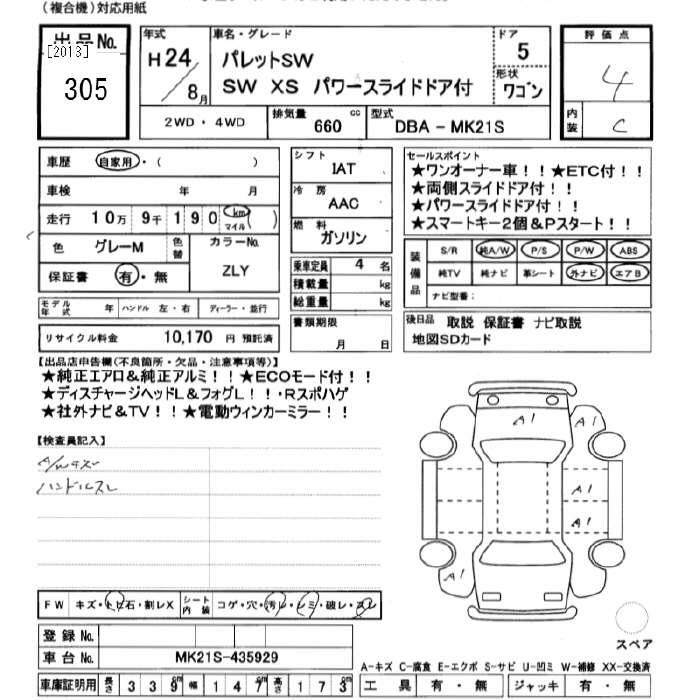 （複合機）対応用紙
出品No.
[2013]
305
年式
H24
8月
車名・グレード
パレットSW
SW XS パワースライドドア付
ドア
5
形状
ワゴン
評価点
4
内装
C
2WD・4WD
排気量 660 cc
型式 DBA - MK21S
車歴 自家用・( )
車検 年 月
走行 10万 9千 190 km マイル )
色 グレーM 色替
カラーNo.
ZLY
保証書 有・無
モデル年式 年 ハンドル 左・右 ディーラー・並行
リサイクル料金 10,170 円 預託済
シフト
IAT
冷房
AAC
燃料
ガソリン
乗車定員 4 名
積載量 kg
総重量 kg
書類期限
月 日
セールスポイント
★ワンオーナー車！！★ETC付！！
★両側スライドドア付！！
★パワースライドドア付！！
★スマートキー2個＆Pスタート！！
装備品
S/R 純A/W P/S P/W ABS
純TV 純ナビ 革シート 外ナビ エアB
ナビ型番：
後日品 取説 保証書 ナビ取説
地図SDカード
【出品店申告欄(不良箇所・欠品・注意事項等)】
★純正エアロ＆純正アルミ！！★ECOモード付！！
★ディスチャージヘッドL＆フォグL！！・Rスポハゲ
★社外ナビ＆TV！！★電動ウィンカーミラー！！
【検査員記入】
A/Wキズ
ハンドルスレ
A1
A1
A1
A1
A1
スペア
FW キズ・トビ石・割レX
シート内装 コゲ・穴・汚レ・シミ・破レ・スレ
登録No.
車台No. MK21S-435929
A-キズ C-腐食 E-エクボ S-サビ U-凹ミ W-補修 XX-交換済
車庫証明用 長さ 339 幅 147 高さ 173 cm
工具 有・無 ジャッキ 有・無